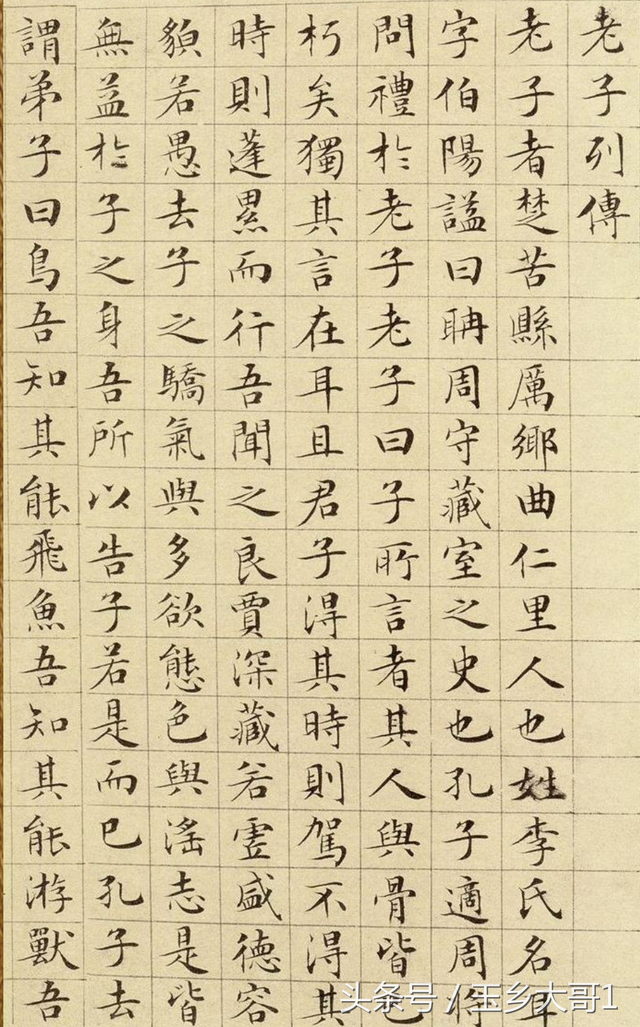 老子列傳
老子者楚苦縣厲鄉曲仁里人也姓李氏名耳
字伯陽謚曰聃周守藏室之史也孔子適周將
問禮於老子老子曰子所言者其人與骨皆已
朽矣獨其言在耳且君子得其時則駕不得其
時則蓬累而行吾聞之良賈深藏若虛盛德容
貌若愚去子之驕氣與多欲態色與滛志是皆
無益於子之身吾所以告子若是而已孔子去
謂弟子曰鳥吾知其能飛魚吾知其能游獸吾
头条号 / 玉乡大哥1